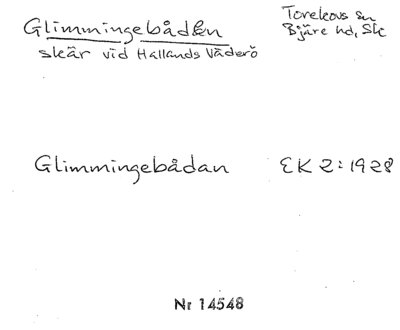 Glimmingebådan
Torekovs sn
Bjäre hd, Sk
skär vid Hallands Väderö
Glimmingebådan EK 2:1928
Nr 14548